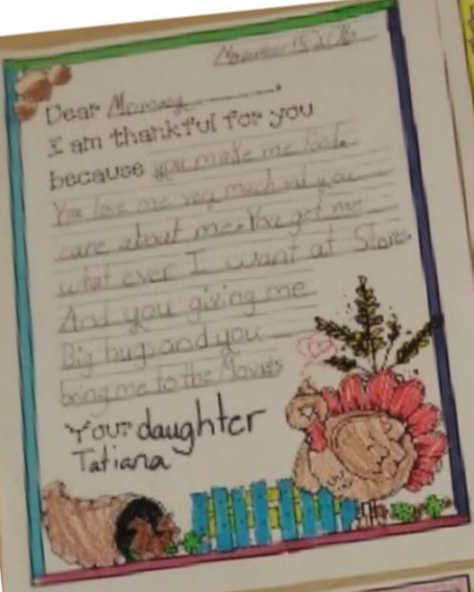 November 15, 2016
Dear Mommy,
I am thankful for you
because you make me food.
You love me very much and you
care about me. You get me
what ever I want at Stores
And you giving me
Big hugs and you
bring me to the Movies
Your daughter
Tatiana